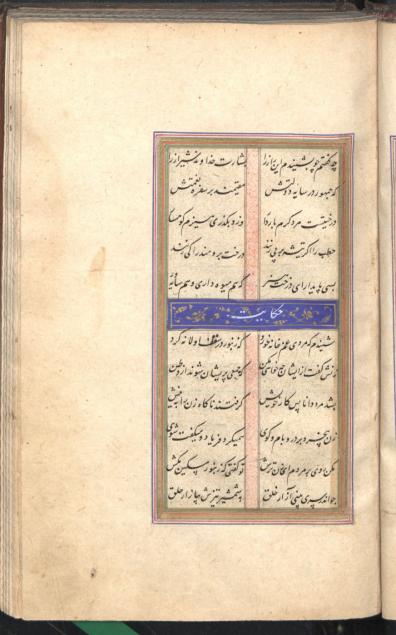 چه گفتم چو بشنیدم این راز را بشارت خداوند شیراز را
که جمهور در سایه دولتش مقیمند بر سفره نعمتش
درختیست مرد کرم باردار وزو بگذری هیزم کوهسار
حطب را اگر تیشه بر پی زنند درخت برومند را کی زنند
بسی پایدار ای درخت هنر که هم میوه داری و هم سایه ور
حکایت
شنیدم که مردی غم خانه خورد که زنبور در سقف او لانه کرد
زنش گفت ازیشان چه خواهی مکن که پریشان شوند از وطن
بشد مرد دانا پس کار خویش گرفتند ناگاه زن را به نیش
زن بیخرد بر در و بام و کوی همیکرد فریاد و میگفت شوی
مکن روی بر مردم ای زن ترش تو گفتی که زنبور مسکین مکش
چو اندر سری بینی آزار خلق بشمشیر تیزش بیازار حلق